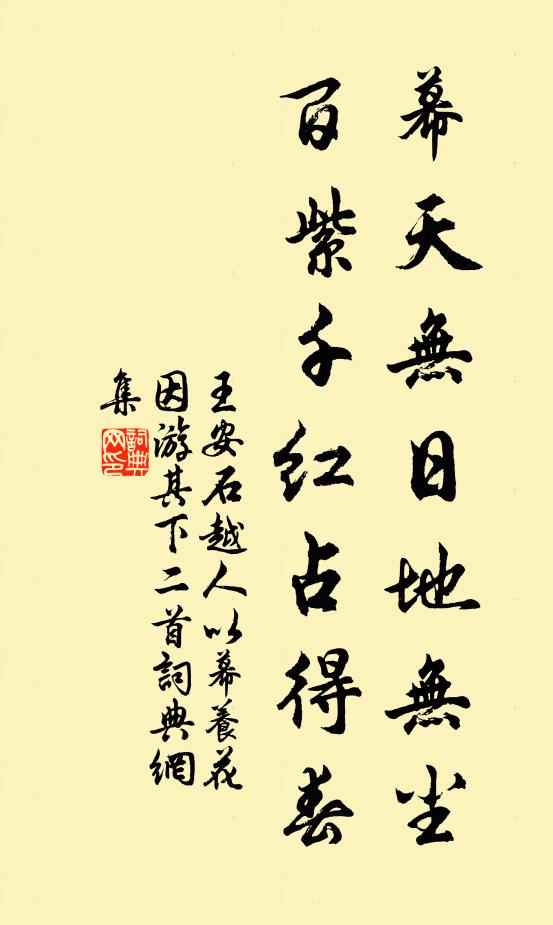 幕天無日地無尘
百紫千红占得春
王安石越人以幕養花
因游其下二首詞典網
集
詞典网印